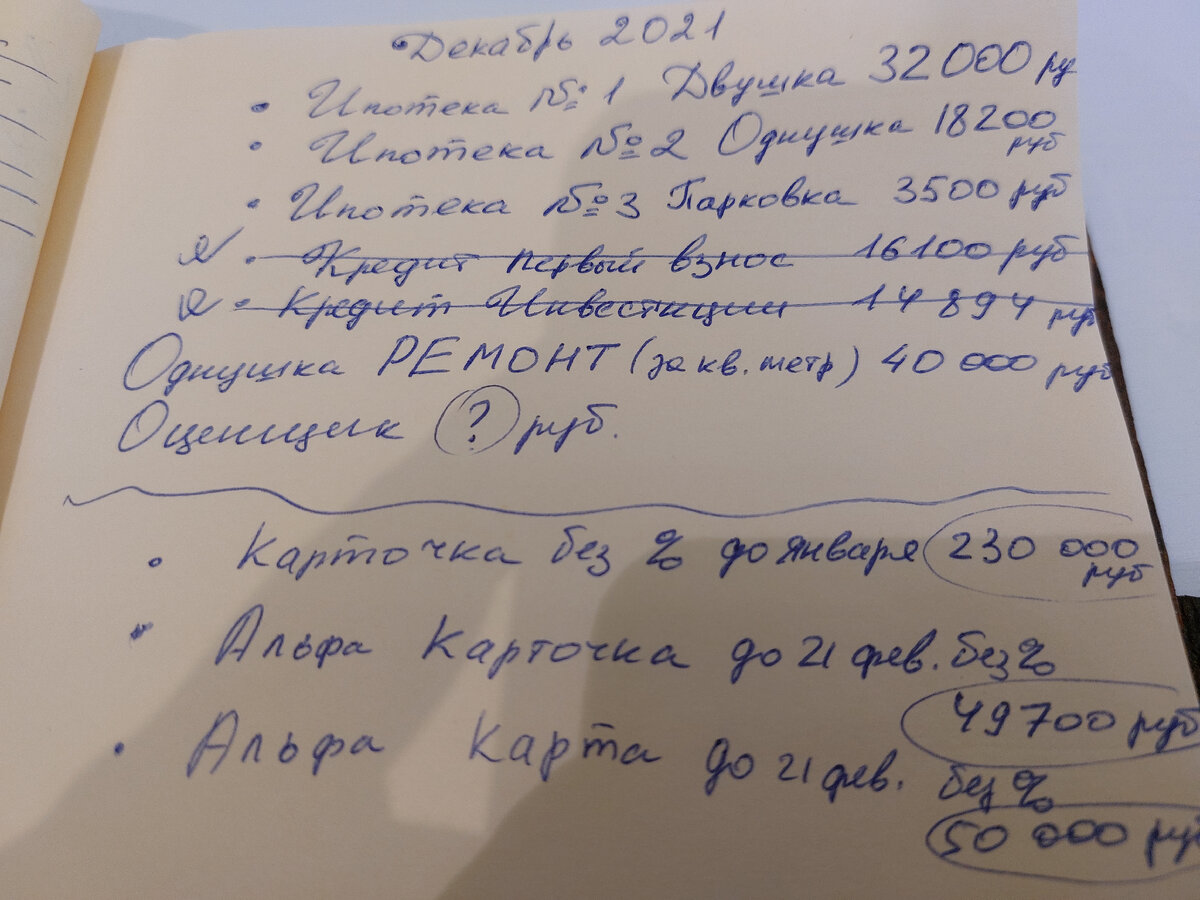 Декабрь 2021
• Ипотека №1 Двушка 32000 ру
• Ипотека №2 Однушка 18200 руб
• Ипотека №3 Парковка 3500 руб
• Кредит первый взнос 16100 руб
• Кредит Инвестиции 14894 руб
Однушка РЕМОНТ (за кв. метр) 40 000 руб
Оценщик ? руб.
• Карточка без % до января 230 000 руб
• Альфа Карточка до 21 фев. без %
49700 руб
• Альфа Карта до 21 фев. без %
50 000 руб